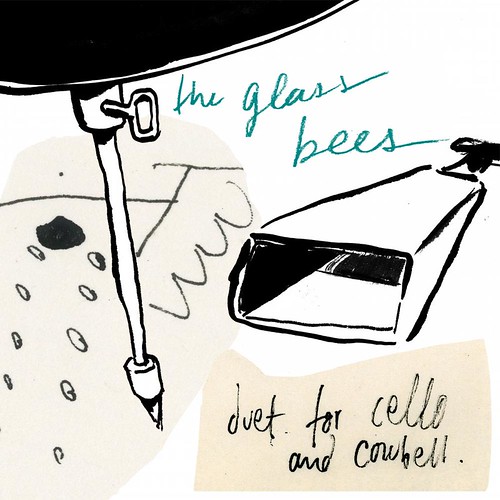 the glass
bees
duet for cello
and cowbell.